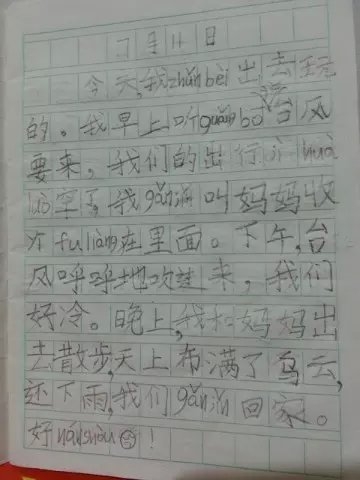 7月11日
今天,我zhǔnbèi出去玩
的。我早上听guǎngbō说台风
要来，我们的出行计huà
落空了,我gǎn
叫妈妈收
衣fu liàng在里面。下午,台
风呼呼地吹进来，我们
好冷。晚上,我和妈妈出
去散步,天上布满了乌云,
还下雨,我们gǎn
回家。
好nánshòu!